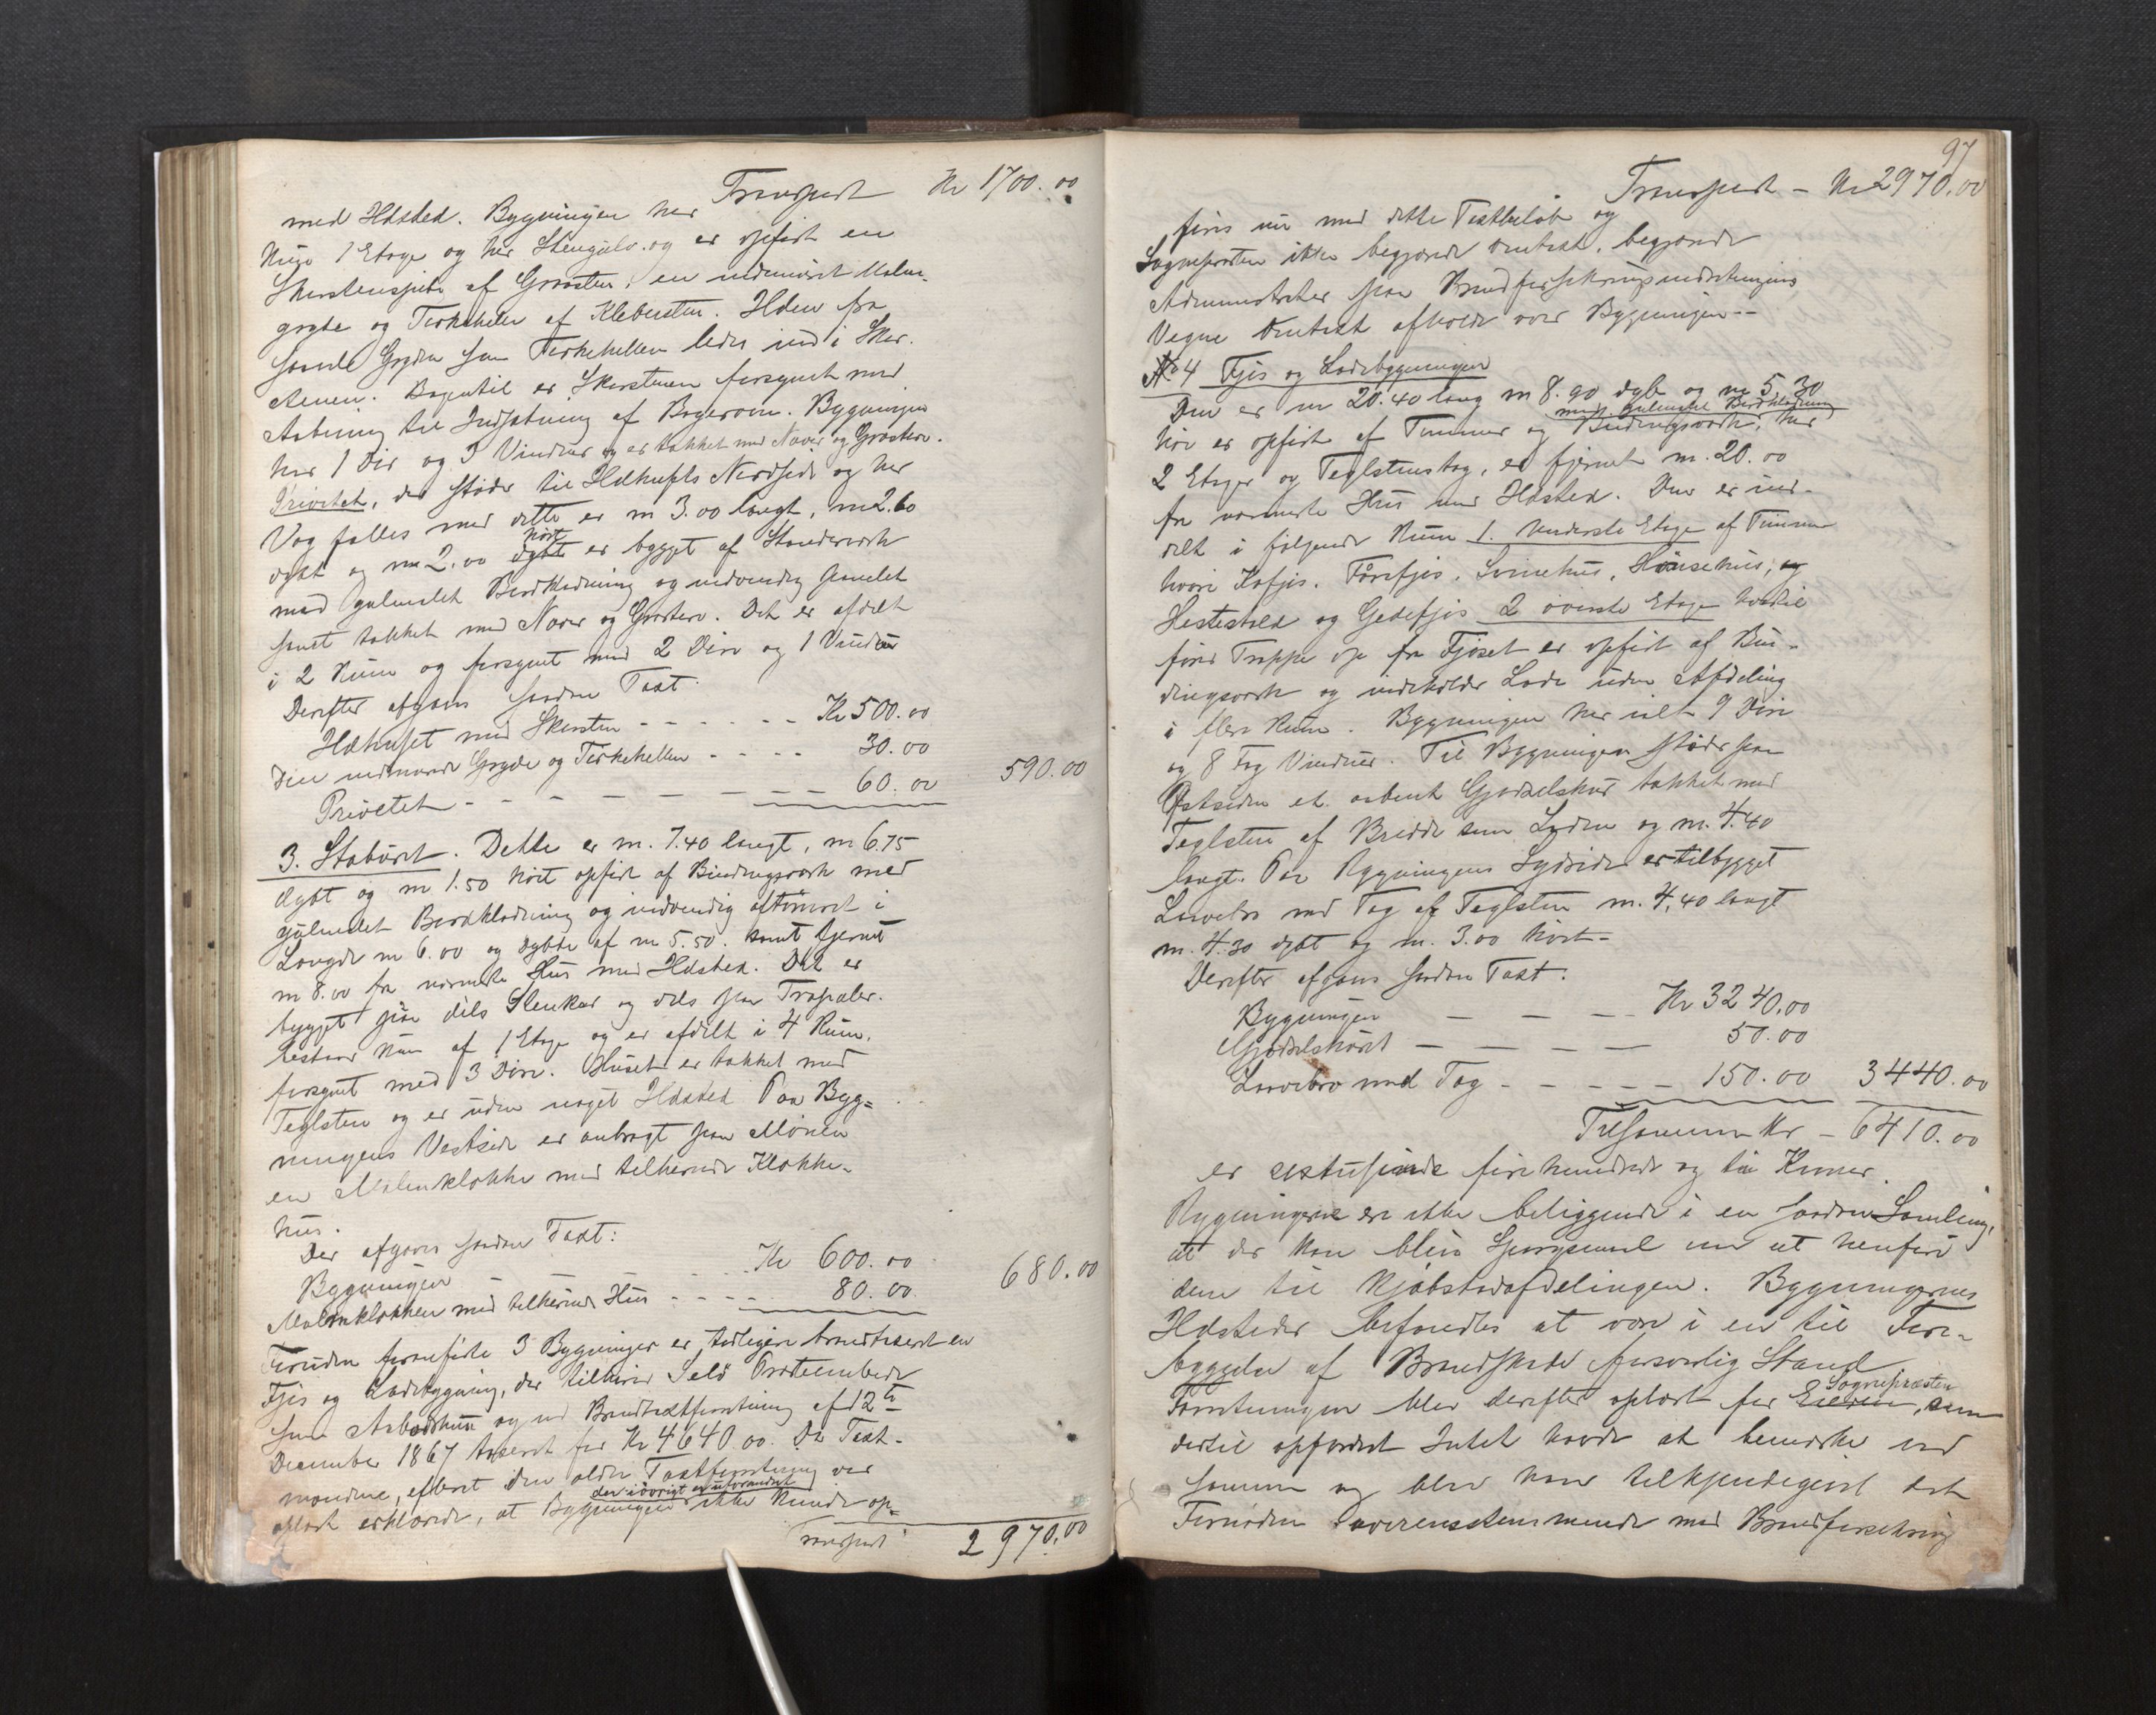 Transport Kr 1700.00
med Ildsted. Bygningen har
kuns 1 Etage og har Stengulv og er opfört en
Skorstenspibe af Graasten, en indmuret Malm-
gryde og Tørkehelle af Klebersten. Ilden fra
saavel Gryden som Tørkehellen ledes ind i Skor-
stenen. Bagentil er Skorstenen forsynet med
Aabning til Indsætning af Bagerovn. Bygningen
har 1 Dör og 3 Vinduer og er tækket med Næver og Græstorv.
Privetet, der støder til Ildhusets Nordside og har
Væg fælles med dette er m 3.00 langt, m 2.60
dybt og m 2.00 höit er bygget af Stenderværk
med gulmalet Bordklædning og indvendig panelet
samt tækket med Næver og Græstorv. Det er afdelt
i 2 Rum og forsynet med 2 Döre og 1 Vindu
Derefter afgaves saadan Taxt:
Ildhuset med Skorsten - - - - - - Kr 500.00
Den indmurede Gryde og Tørkehellen - - - - 30.00
Privetet - - - - - - - - 60.00 590.00
3. Stabüret. Dette er m. 7.40 langt, m 6.75
dybt og m 1.50 höit opfört af Bindingsværk med
gülmalet Bordklædning og indvendig aftömret i
Længde m 6.00 og Dybde af m 5.50. samt fjernet
m 8.00 fra nærmeste Hus med Ildsted. Det er
bygget paa dels Stenkar og dels paa Træpæler.
bestaar kun af 1 Etage og er afdelt i 4 Rüm.
forsynet med 3 Döre. Huset er tækket med
Teglsten og er uden noget Ildsted Paa Byg=
ningens Vestside er anbragt paa Mönen
en Malmklokke med tilhørende Klokke-
hus.
Der afgaves saadan Taxt:
Bygningen - - - - - Kr 600.00
Malmklokken med tilhörende Hus - - - - 80.00 680.00
Foruden foranførte 3 Bygninger er tidligere brandtaxeret en
Fjös og Ladebygning, der tilhører Selö Præsteembede
som Aabodshus og ved Brandtaxtforretning af 12te
December 1867 taxeret for Kr 4640.00. Da Taxt-
mændene, efterat den ældre Taxtforretning var
oplæst erklærede, at Bygningen der iövrigt er uforandret ikke kunde op=
Transport 2970.00
97
Transport - Kr 2970.00
föres nu med dette Taxtbeløb og
Sogneprästen ikke begjærede Omtaxt. begjærede
Administrator paa Brandforsikringsindretningens
Vegne Omtaxt afholdt over Bygningen. -
No 4 Fjös og Ladebygningen
Den er m 20.40 lang m 8.90 dyb og m 5.30
höi er opfört af Tømmer og Bindingsværk, med gulmalet Bordklædning har
2 Etager og Teglstenstag, er fjernet m. 20.00
fra nærmeste Hus med Ildsted. Den er ind-
delt i følgende Rum 1. Underste Etage af Tømmer
hvori Kofjös. Fårefjös. Svinehus, Hönsehus, og
Hestestald og Gedefjös 2 överste Etage hvortil
förer Trappe op fra Fjöset er opfört af Bin-
dingsværk og indeholder Lade uden Afdeling
i flere Rum. Bygningen har ialt 9 Döre
og 8 Fag Vinduer. Til Bygningen stöder paa
Østsiden et aabent Gjødselskur tækket med
Teglsten af Bredde som Laden og m. 4.40
langt. Paa Bygningens Sydside er tilbygget
Laavebro med Tag af Teglsten m. 4.40 langt
m. 4.30 dybt og m. 3.00 höit -
Derefter afgaves saadan Taxt:
Bygningen - - - Kr 3240.00
Gjødselsküret - - - - 50.00
Laavebro med Tag - - - - - 150.00 3440.00
Tilsammen Kr - 6410.00
er sextusinde firehundrede og ti Kroner.
Bygningerne ere ikke beliggende i en saadan Samling,
at der kan blive Spørgsmaal om at henføre
dem til Kjøbstadafdelingen. Bygningernes
Ildsteder befandtes at være i en til Fore-
byggelse af Brandskade forsvarlig Stand
Forretningen blev derefter oplæst for Eieren Sognepræsten, som
dertil opfordret Intet havde at bemærke ved
samme og blev ham tilkjendegivet det
Fornødne overensstemmende med Brandforsikring